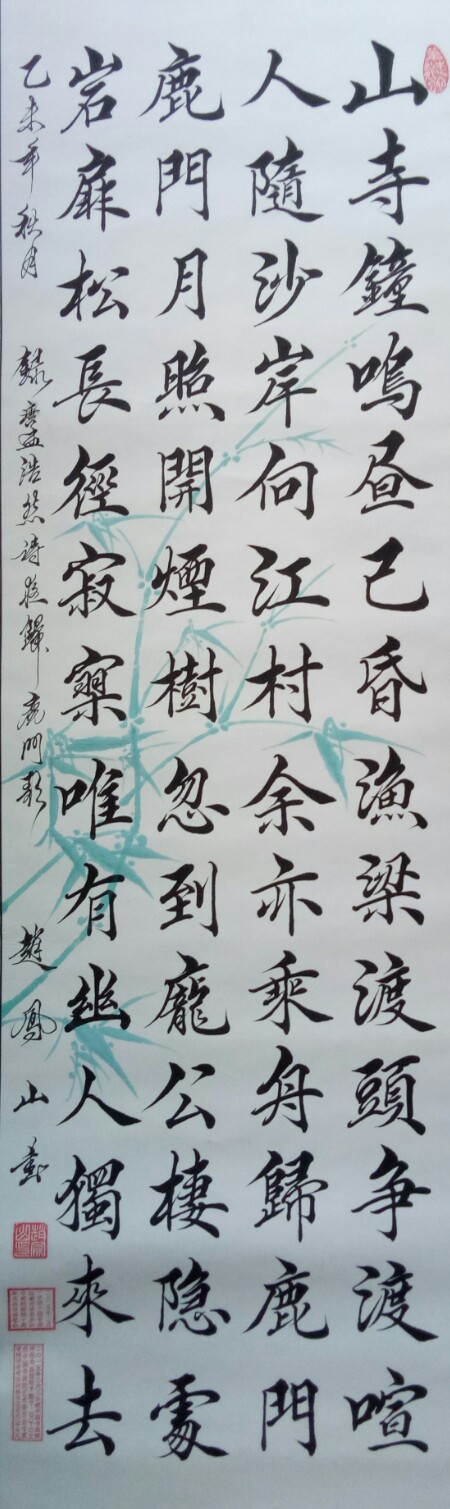 山寺鐘鳴昼已昏漁梁渡頭争渡喧
人隨沙岸向江村余亦乘舟歸鹿門
鹿門月照開煙樹忽到龐公棲隐處
岩扉松長徑寂寞唯有幽人獨來去
乙未年秋月 錄唐孟浩然诗夜歸鹿门歌 趙鳳山書